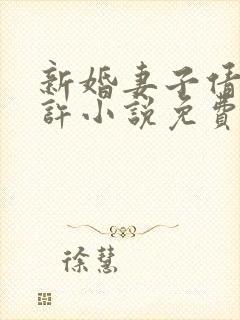 新婚妻子倩
許小說免費
徐慧